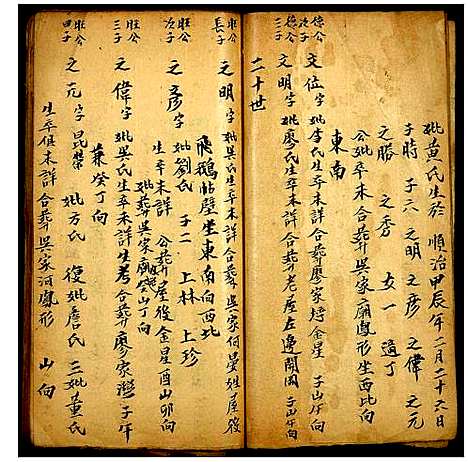 妣黃氏生於 順治甲辰年二月二十六日
子時 子六 之明 之彥 之偉 之元
之勝 之秀 女一 適丁
公妣卒未詳合葬吳家廟鳳形坐西北向
東南
德公
次子
文位字 妣李氏生卒未詳合葬廖家塝金星 子山午向
德公
三子
文明字 妣廖氏生卒未詳合葬老屋左邊開園 子山午向
二十世
旺公
長子
之明字 妣吳氏生卒未詳合葬吳家何晏姓屋後
飛鵝帖壁坐東南向西北
旺公
次子
之彥字 妣劉氏 子二 上林 上珍
生卒未詳 公葬屋後金星酉山卯向
妣葬吳家廟 山丁向
旺公
三子
之偉字 妣吳氏生卒未詳生考合葬廖家灣子午
兼癸丁向
旺公
四子
之元字 昆榮 妣方氏 復妣詹氏 三妣董氏
生卒俱未詳合葬吳家河鳳形 山向